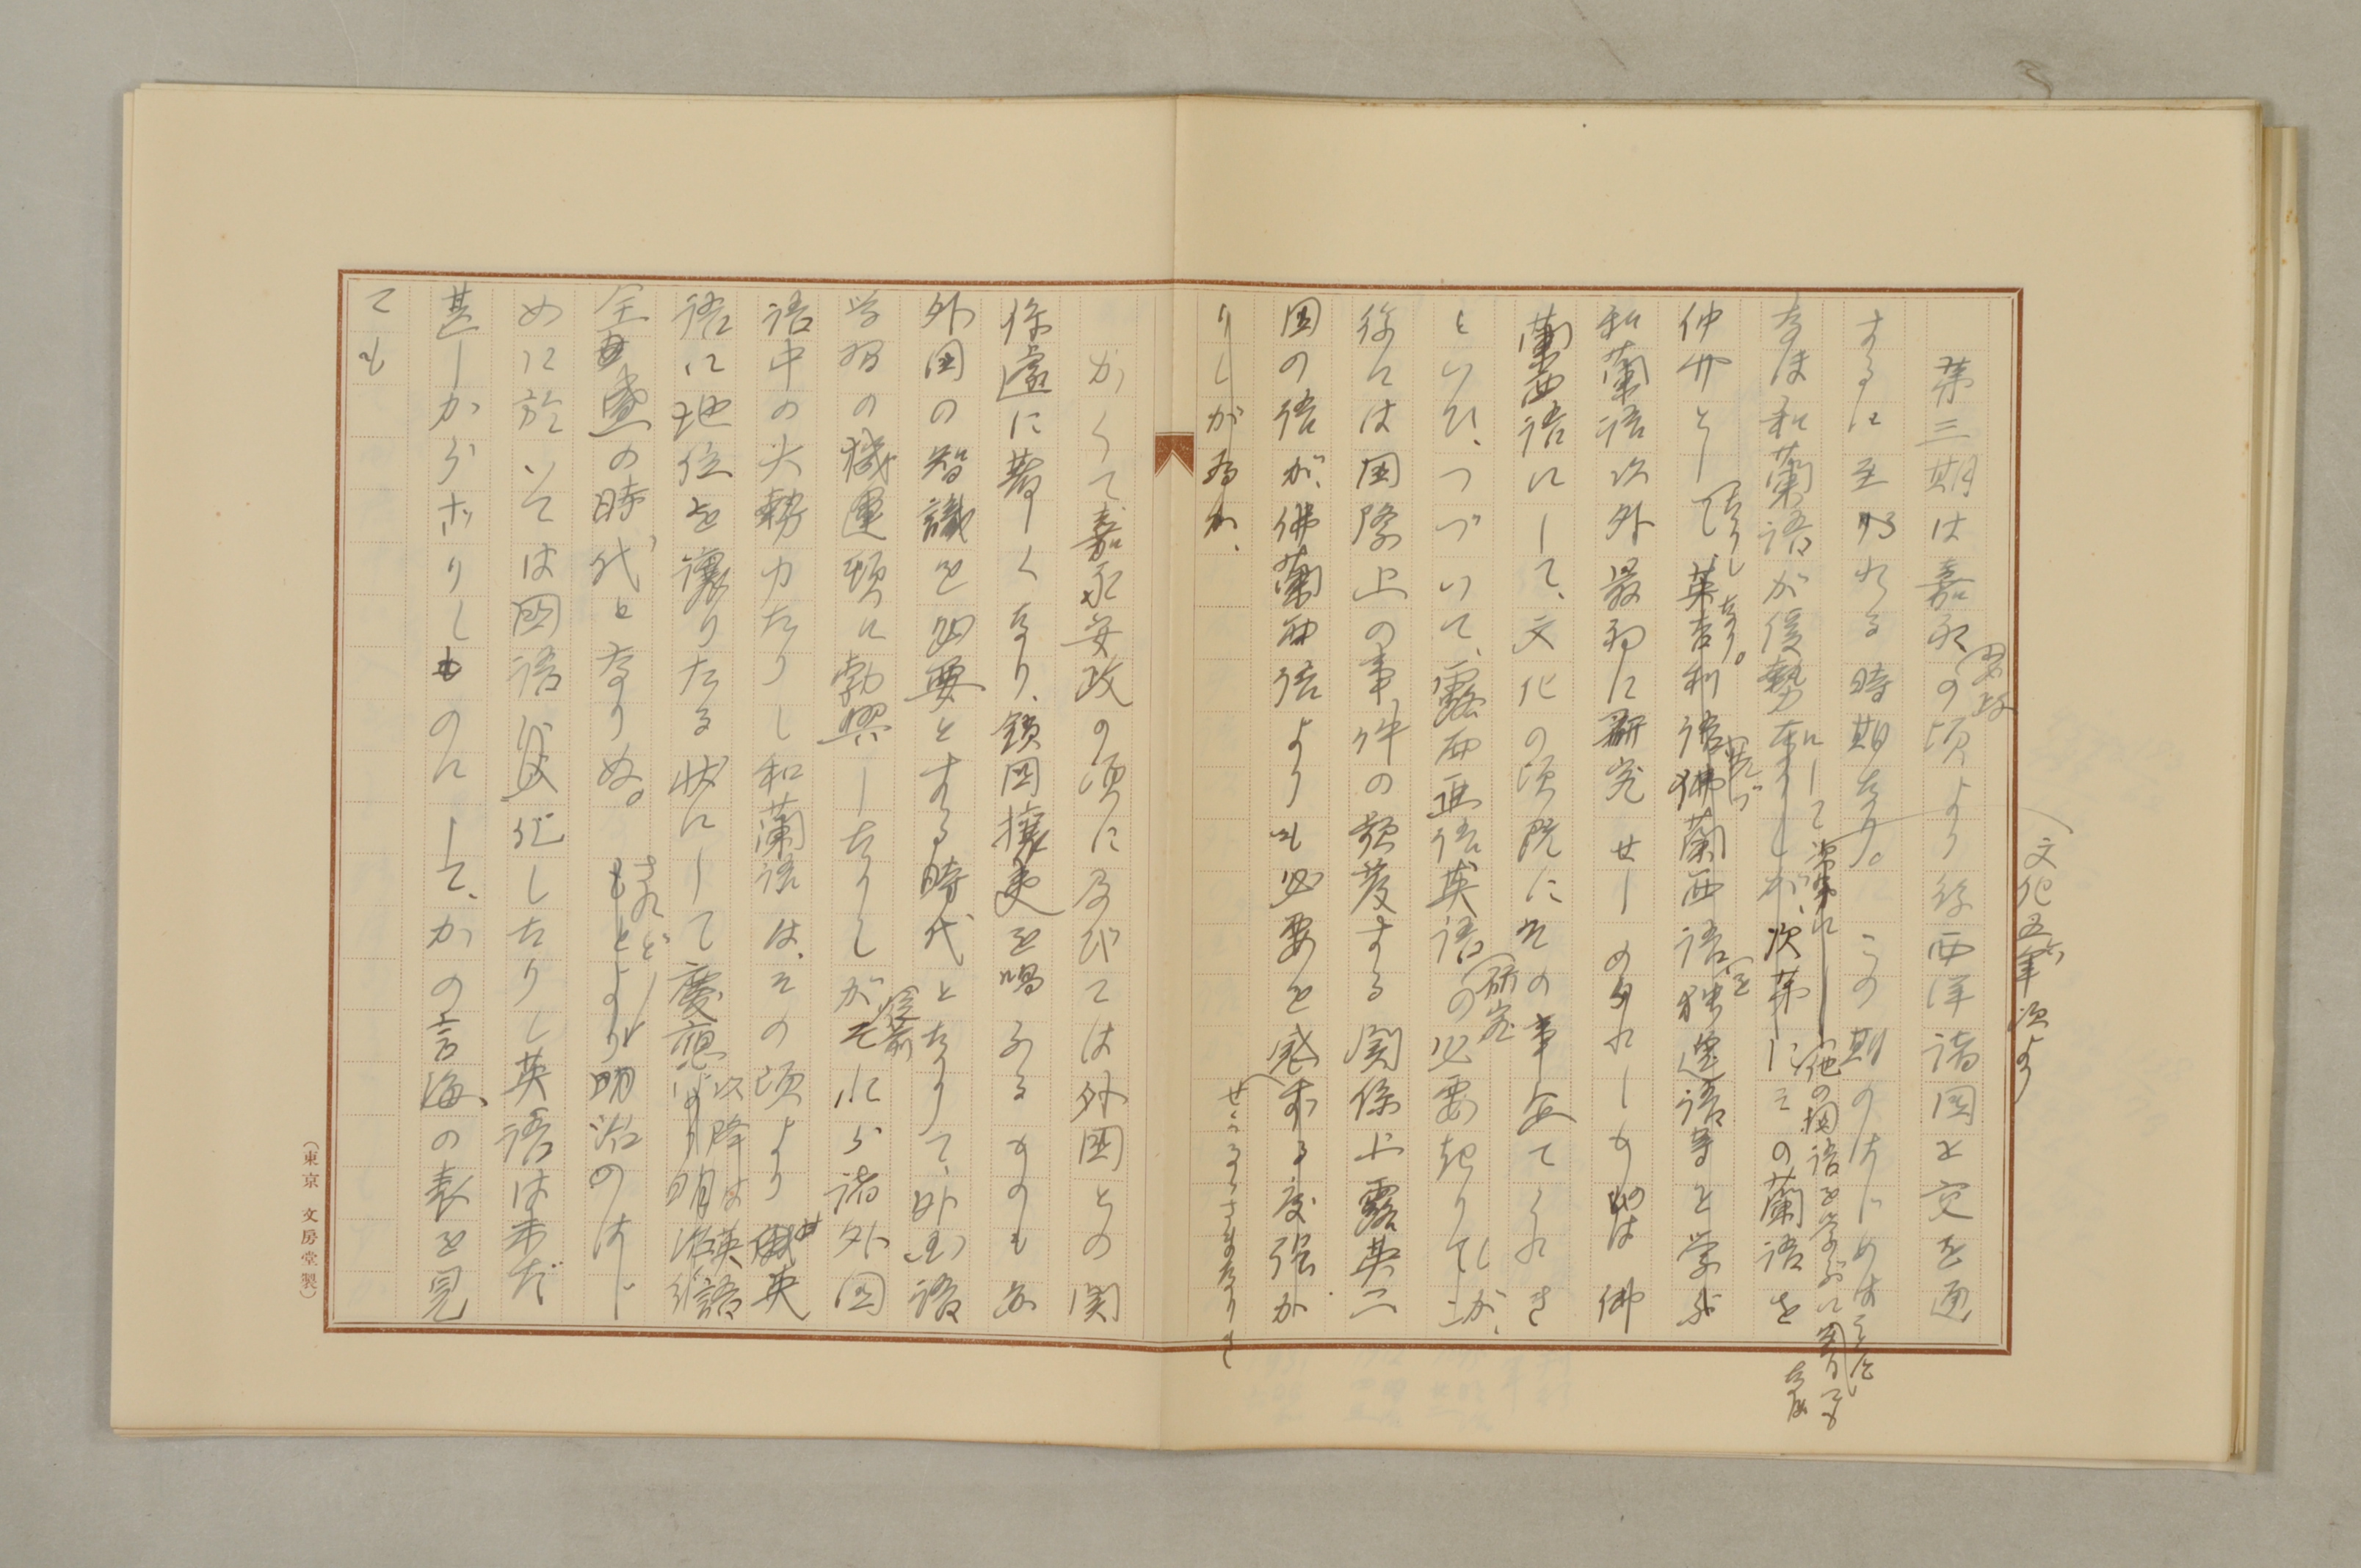 第三期は嘉永の頃より後西洋諸国と交を通
安政
するに至れる時期なり。この期のはじめは
なほ和蘭語が優勢なりしが、次第にその蘭語を
にして
文化五六年頃より
他の国語を学ぶに
仲介として、英吉利語佛蘭西語獨逸語等を学ぶ
たりしなり。
和蘭語以外最初に研究せしめられしものは佛
蘭西語にして、文化の頃既にその事ありき
といひ、つづいて、露西亜語英語の必要起りてしが、
研究
後には国際上の事件の頻発する関係上露英二
国の語が、佛蘭西語よりも必要を感ずる度強か
せらるる
りしが為か、
かくて嘉永安政の頃に及びては外国との関
係遽に著しくなり、鎖国攘夷を唱ふるものも亦
外国の智識を必要とする時代となりて、外国語
学習の機運頓に勃興したりしがそれら諸外国
従前
語中の大勢力たりし和蘭語は、その頃より英
語に地位を譲りたる状にして慶應
以降は英語
全盛の時代となりぬ。もとより明治のはじ
されど
めに於いては国語化したりし英語は未だ
甚しからざりしものにして、かの言海の表を見
ても
(東京 文房堂製)